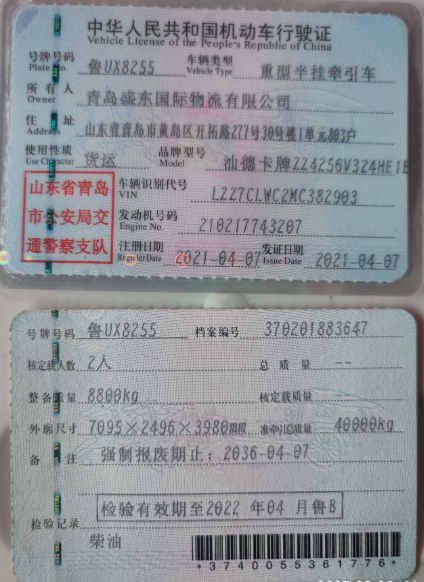 中华人民共和国机动车行驶证
Vehicle License of the People's Republic of China
号牌号码 鲁UX8255 车辆类型 重型半挂牵引车
Plate No. Vehicle Type
所有人 青岛盛东国际物流有限公司
Owner
住址 山东省青岛市黄岛区开拓路277号30号楼1单元803户
Address
使用性质 货运 品牌型号 汕德卡牌ZZ4256V324HE1B
Use Character Model
山东省青岛
市公安局交
通警察支队
车辆识别代号 LZZ7CLWC2MC382903
VIN
发动机号码 210217743207
Engine No.
注册日期 2021-04-07 发证日期 2021-04-07
Register Date Issue Date
号牌号码 鲁UX8255 档案编号 370201883647
核定载人数 2人 总质量 --
整备质量 8800kg 核定载质量 --
外廓尺寸 7095×2496×3980mm 准牵引总质量 40000kg
备注 强制报废期止：2036-04-07
检验有效期至2022年04月鲁B
检验记录
柴油
*3740055361776*